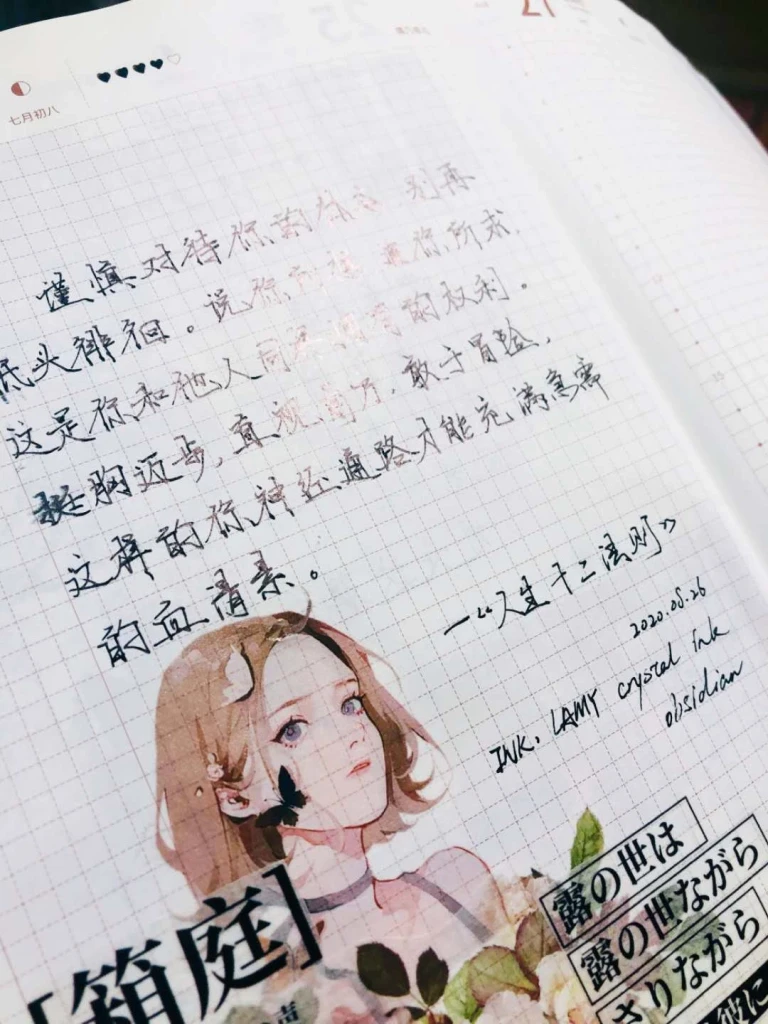 21
七月初八
谨慎对待你的体态 别再
低头徘徊。说你所想,追你所求,
这是你和他人同样拥有的权利。
挺胸迈步,直视前方,敢于冒险,
这样的你神经通路才能充满急需
的血清素。
—《人生十二法则》
2020.08.26
INK. LAMY crystal ink
obsidian
[箱庭]
露の世は
露の世ながら
さりながら
彼に